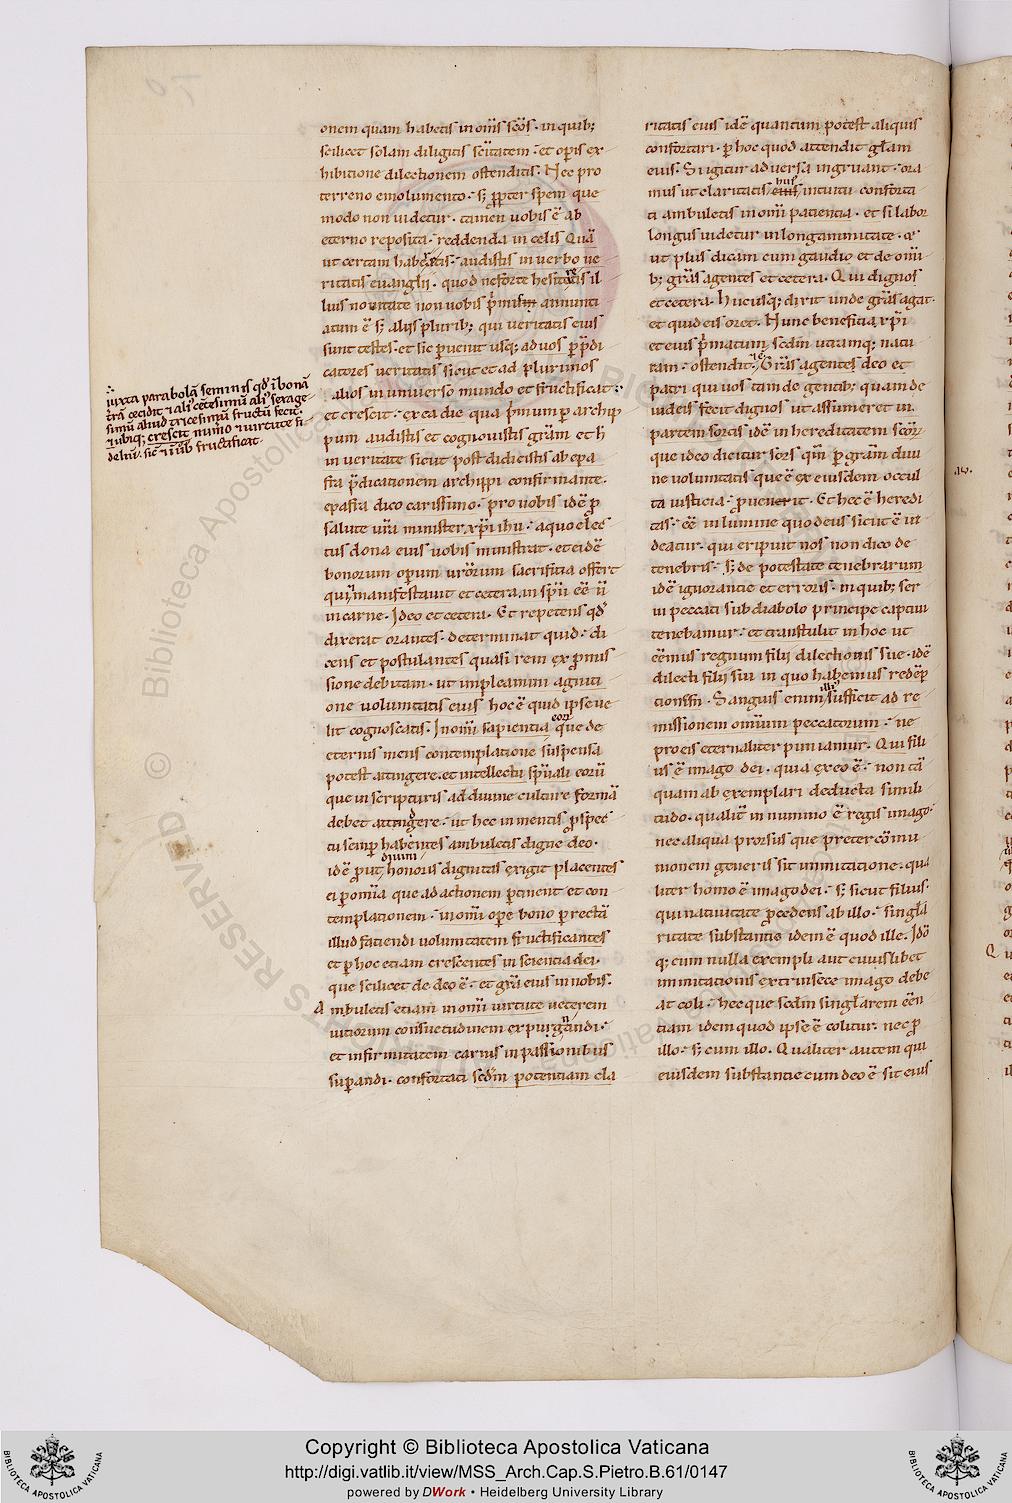 onem quam habetis in om̄s sc̄os · in quib;
scilicet solam diligitis sc̄itatem · et op̲is ex
hibitione dilectionem ostenditis. Hec pro
terreno emolumento · s; p̲pter spem que
modo non uidetur · tamen uobis ē ab
eterno reposita · reddenda in celis Quā
ut certam habeatis · audistis in uerbo ue
ritatis euanglii · quod ne forte hesitetis il
lius nouitate non uobis p̄mism annunti
atum ē s; alijs plurib; qui ueritatis eius
sunt testes · et sic p̲uenit usq; ad uos p̲ p̄di
catores ueritatis sicut et ad plurimos
alios in uniuerso mundo et fructificat :·
et crescit · ex ea die qua p̄mum p̲ archip
pum audistis et cognouistis grām et h̄
in ueritate sicut post didicistis ab epa
fra p̄dicationem archippi confirmante ·
epafra dico carissimo · pro uobis idē p̲
salute ur̄a minister xp̄i ih̄u · a quo elec
tus dona eius uobis ministrat · et eidē
bonorum op̲um ur̄orum sacrificia offert
qui manifestauit et cetera · in sp̄u eē ū
in carne · Ideo et cetera · Et repetens qd̄
dixerat orantes · determinat quid · di
cens et postulantes quasi rem ex p̲mis
sione debitam · ut impleamini agniti
one uoluntatis eius hoc ē quid ipse ue
lit cognoscatis · In om̄i sapientia que de
eorum
eternis mens contemplatione suspensa
potest attingere · et intellectu sp̄uali eorū
que in scripturis ad diuine culture formā
debet attingere · ut hec in mentis p̲spec
tu semp̲ habentes ambuletis digne deo ·
diuini
idē p̲ut honoris dignitas exigit placentes
ei p̲ omīa que ad actionem p̲tinent et con
templationem · in om̄i ope bono p̲ rectā
illud faciendi uoluntatem fructificantes
et p̲ hoc etiam crescentes in scientia dei ·
que scilicet de deo ē · et grā eius in nobis ·
Ambuletis etiam in om̄i uirtute ueterem
uitiorum consuetudinem expurgandi ·
et infirmitatem carnis in passionibus
sup̲andi · confortati scd̄m potentiam cla
∴
iuxta parabolā seminis qd̄ ī bonā
tr̄a cecidit ⁊ ali⁹ cētesimū ali⁹ sexage
simū aliud tricesimum fructū fecit ·
⁊ ubiq; crescit num̄o ⁊ uirtute fi
deliū · sic ⁊ ī uob̄ fructificat ·
ritatis eius idē quantum potest aliquis
confortari · p̲ hoc quod attendit glām
eius · Si igitur aduersa ingruant · ora
huī⁹
mus ut claritatis eius intuitu conforta
ti ambuletis in om̄i patientia · et si labor
longus uidetur in longanimitate · &
ut plus dicam cum gaudio et de om̄i
b; grās agentes et cetera · Qui dignos
et cetera · Hucusq; dixit unde grās agat ·
et quid eis oret · Hunc beneficia xp̄i
et eius p̄matum scd̄m utramq; natu
ram · ostendit · Grās agentes deo et
patri qui uos tam de gentib; quam de
iudeis fecit dignos ut assumeret in
partem sortis idē in hereditatem sc̄orꝝ
que ideo dicitur sors qm̄ p̲ grām diui
ne uoluntatis que ē ex eiusdem occul
ta iusticia · p̲uenerit · Et hec ē heredi
tas · eē in lumine quo deus sicut ē ui
deatur · qui eripuit nos non dico de
tenebris · s; de potestate tenebrarum
idē ignorantie et erroris · in quib; ser
ui peccati sub diabolo principe captiui
tenebamur · et transtulit in hoc ut
eēmus regnum filij dilectionis sue · idē
dilecti filij sui in quo habemus redēp
tionem · Sanguis enim illi⁹ sufficit ad re
missionem omīum peccatorum · ne
pro eis eternaliter puniamur · Qui fili
us ē imago dei · quia ex eo ē · non tā
quam ab exemplari deducta simili
tudo · qualit̄ in nummo ē regis imago ·
nec aliqua prorsus que preter cōmu
nionem generis sit immitatione · qua
liter homo ē imago dei · s; sicut filius ·
qui natiuitate p̲cedens ab illo · singla
ritate substantię idem ē quod ille · Ido
q; cum nulla exempli aut cuiuslibet
immitationis extrinsece imago debe
at coli · hec que scd̄m singlarem eēn
tiam idem quod ipse ē colitur · nec p̲
illo · s; cum illo · Qualiter autem qui
eiusdem substantie cum deo ē sit eius
Copyright © Biblioteca Apostolica Vaticana
http://digi.vatlib.it/view/MSS_Arch.Cap.S.Pietro.B.61/0147
powered by DWork • Heidelberg University Library
BIBLIOTECA APOSTOLICA VATICANA
BIBLIOTECA APOSTOLICA VATICANA